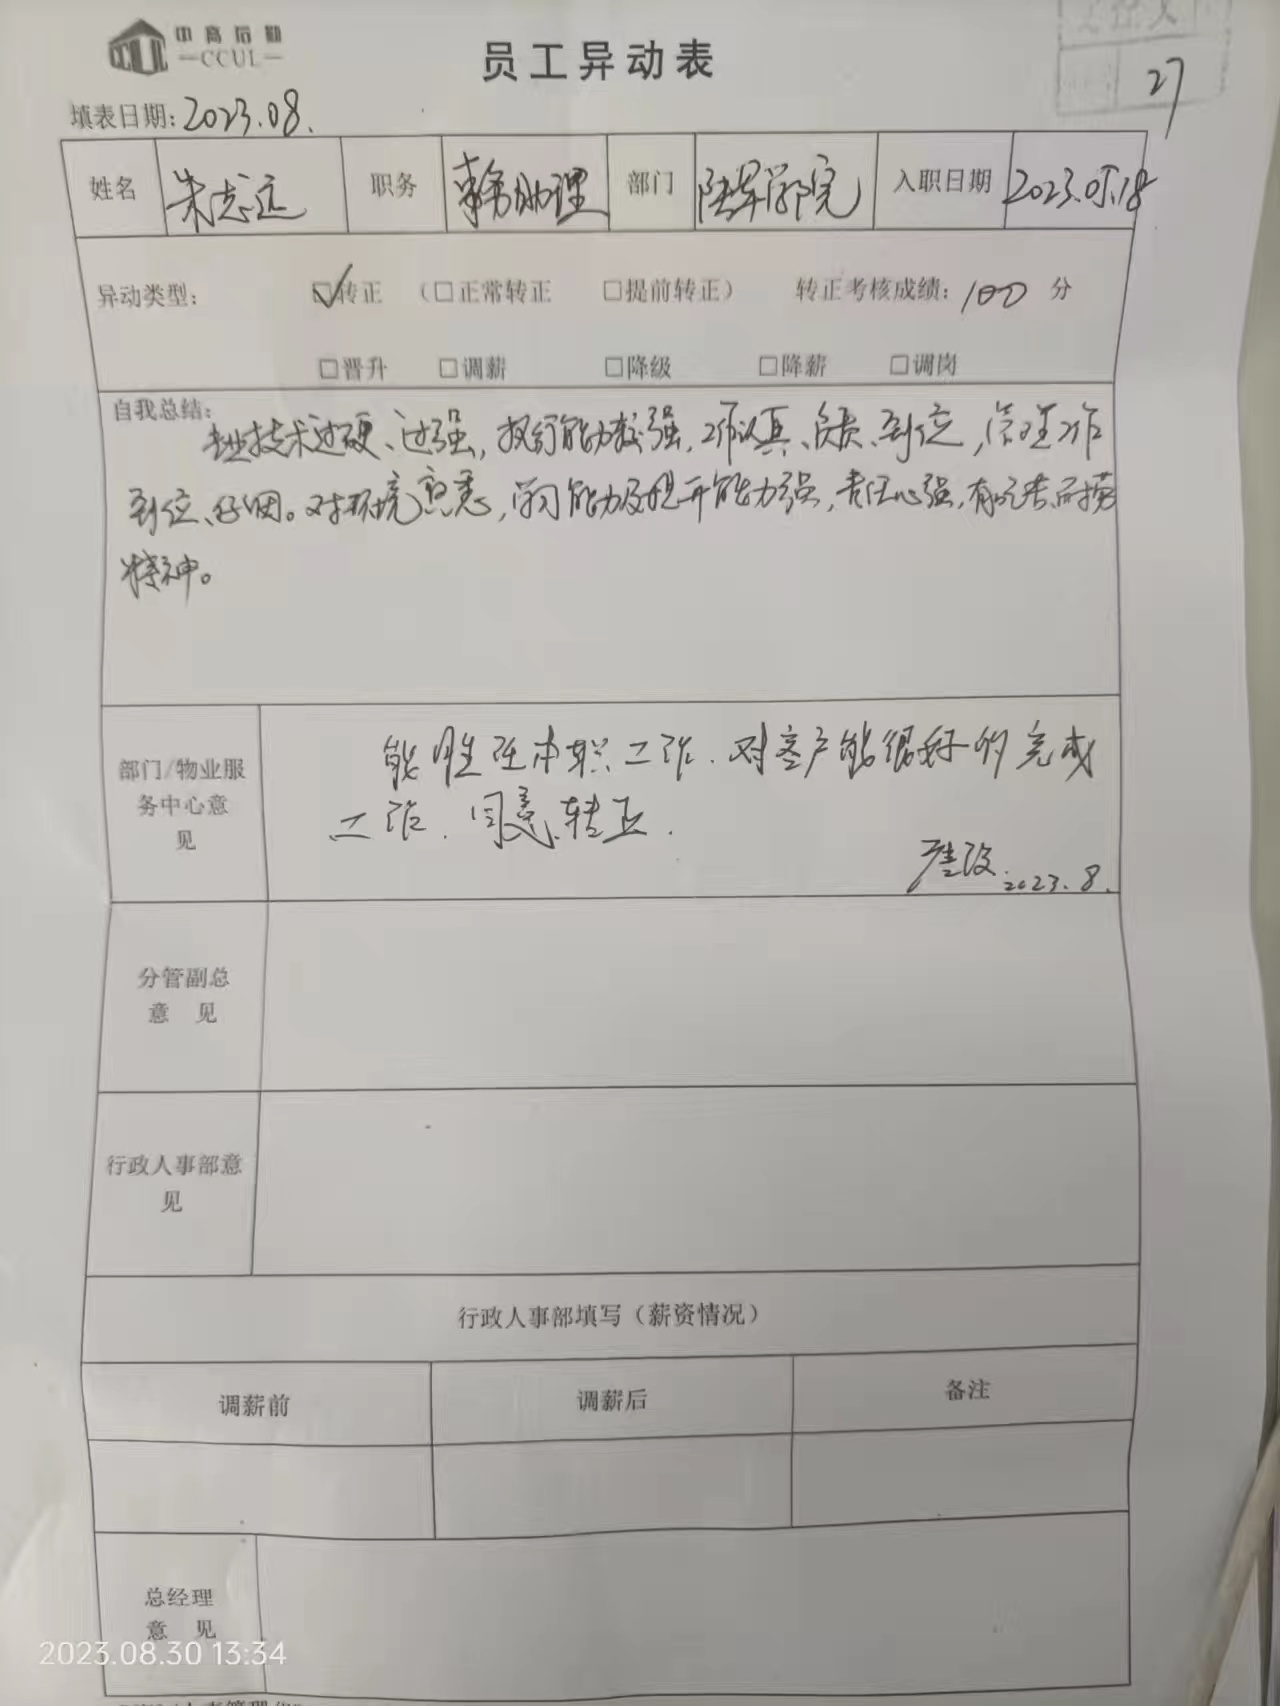 中高后勤
CCUL
员工异动表
27
填表日期:2023.08.
姓名 朱志远 职务 事务助理 部门 陆军学院 入职日期 2023.05.18
异动类型: ☑转正 (□正常转正 □提前转正) 转正考核成绩:100 分
□晋升 □调薪 □降级 □降薪 □调岗
自我总结:
专业技术过硬、过强,执行能力较强,工作认真、负责、到位,管理工作
到位、仔细。对环境熟悉,学习能力及提升能力强,责任心强,有吃苦耐劳
精神。
部门/物业服
务中心意
见
能胜任本职工作.对客户能很好的完成
工作.同意转正.
2023.8.
分管副总
意 见
行政人事部意
见
行政人事部填写(薪资情况)
调薪前 调薪后 备注
总经理
意 见
2023.08.30 13:34